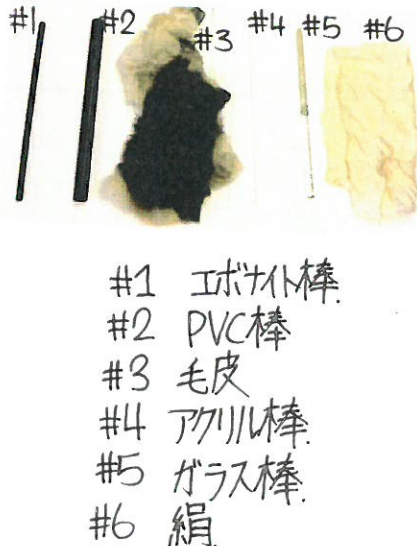 #1 #2 #3 #4 #5 #6
#1 エボナイト棒
#2 PVC棒
#3 毛皮
#4 アクリル棒
#5 ガラス棒
#6 絹